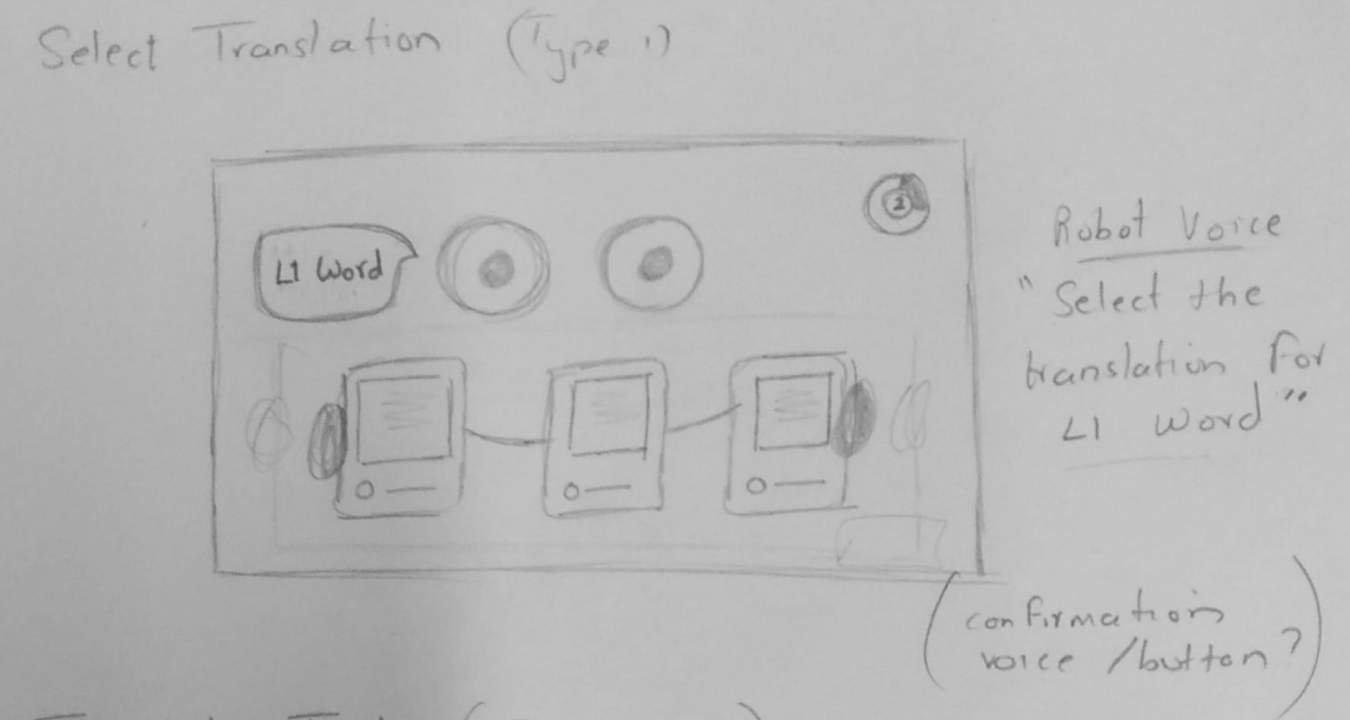 Select Translation (Type 1)
2
L1 Word
Robot Voice
"Select the
translation for
L1 word"
(confirmation
voice /button?)